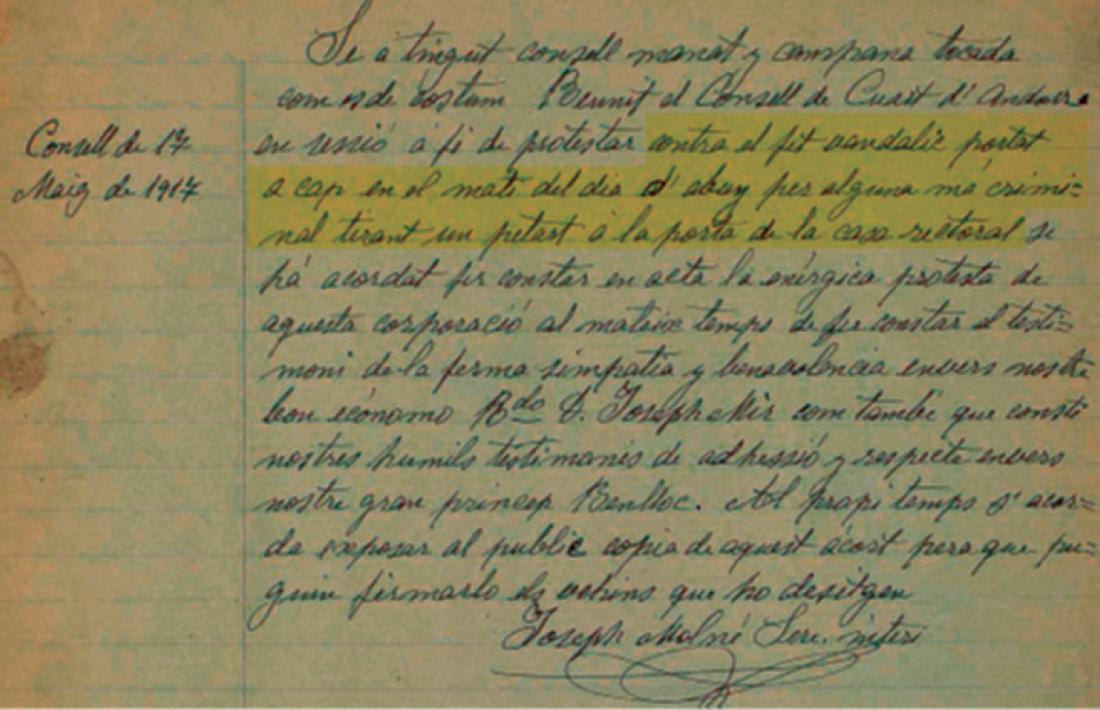 Se a tingut consell manat y campana tocada
com es de costum Reunit el Consell de Cuart d' Andorra
en sessió a fi de protestar contra el fet vandalic portat
Consell de 17
Maig de 1917
a cap en el mati del dia d' abuy per alguna má crimi=
nal tirant un petart á la porta de la casa rectoral se
há acordat fer constar en acta la enérgica protesta de
aquesta corporació al mateix temps de fer constar el testi=
moni de la ferma simpatia y benavolencia envers nostre
bon ecónamo Rdo D. Joseph Mir com també que consti
nostres humils testimonis de adhessió y respecte envers
nostre gran princep Benlloc. Al propi temps s' acor=
da exposar al public copia de aquest acort pera que pu=
guin firmarlo els vehins que ho desitgen
Joseph Molné Scre. interi